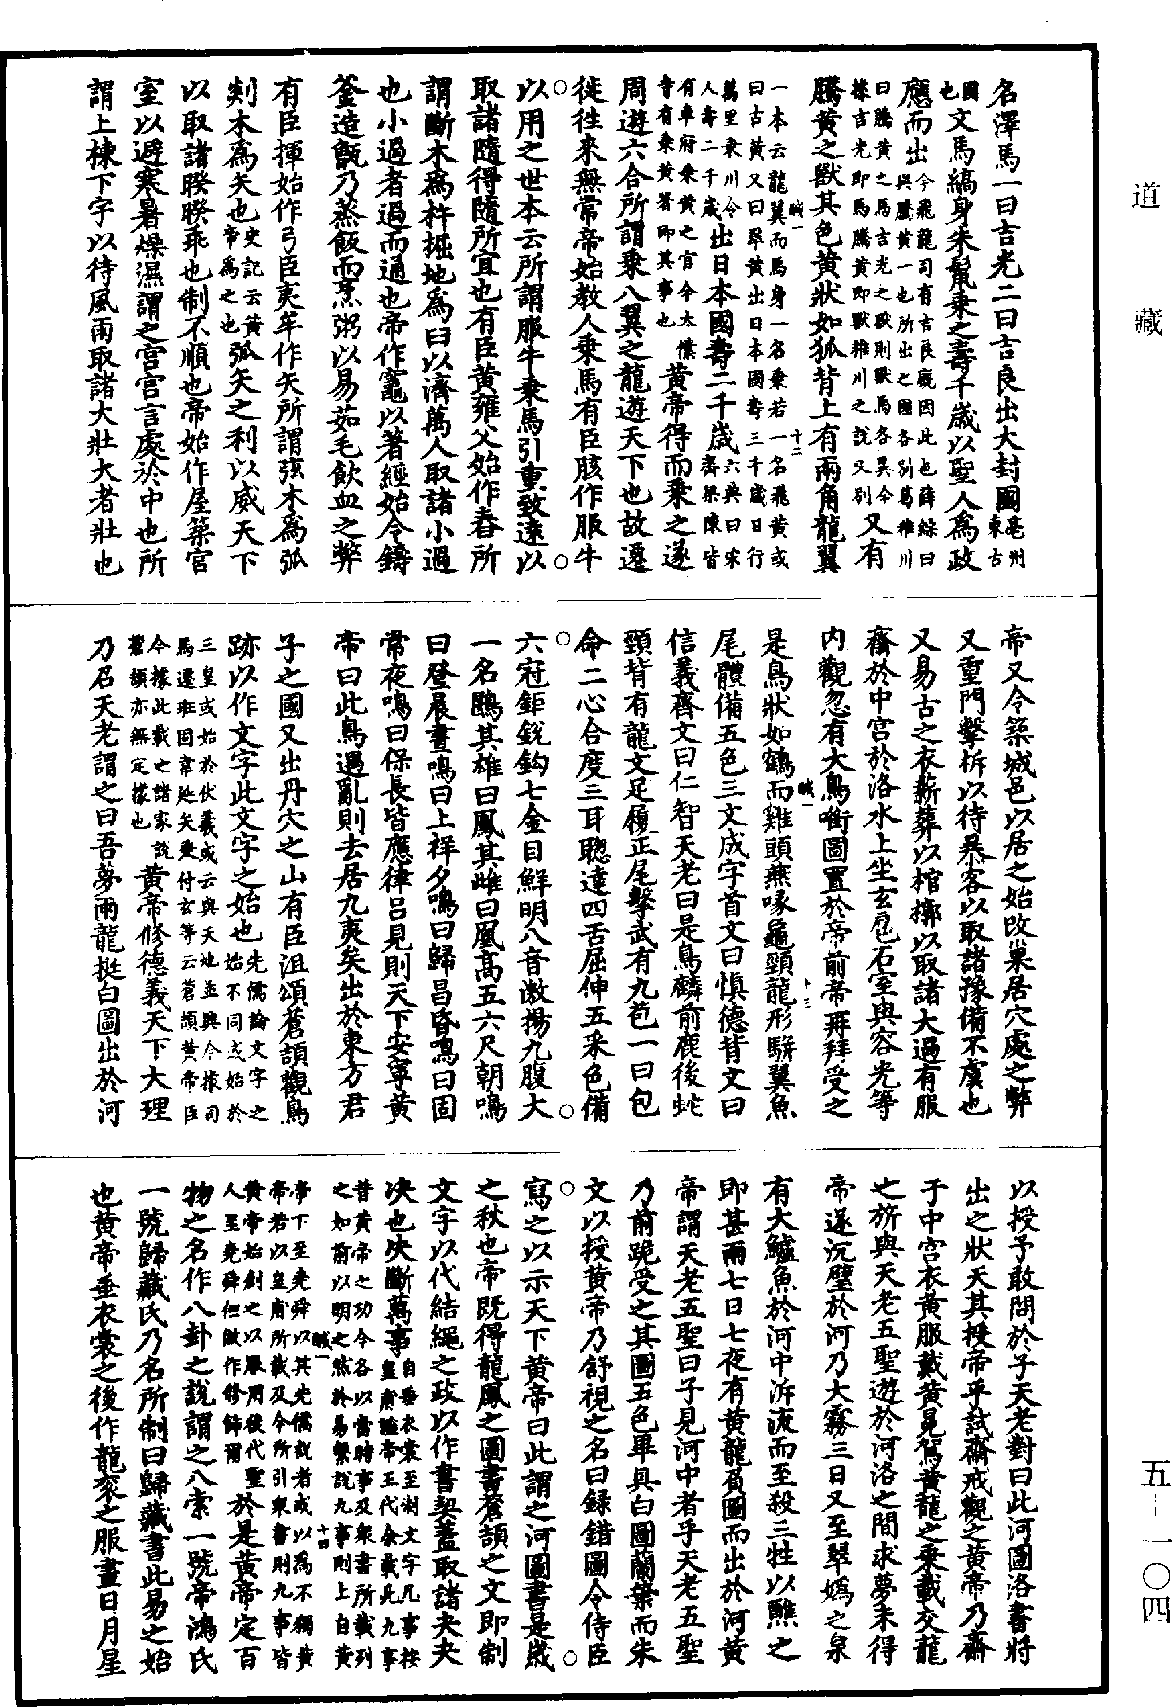 道藏
五—一〇四
名澤馬一曰吉光二曰吉良出大封國亳州東古
國也文馬縞身朱鬣乘之壽千歲以聖人為政
應而出今飛龍司有吉良廐因此也薛綜曰與騰黃一也所出之國各別葛稚川
曰騰黃之馬吉光之獸則獸馬各異今據吉光即馬騰黃即獸稚川之說又別又有
騰黃之獸其色黃狀如狐背上有兩角龍翼
一本云龍翼而馬身一名乘若一名飛黃或
曰古黃又曰翠黃出日本國壽三千歲日行
萬里乘川令人壽二千歲出日本國壽二千歲六典曰宋齊梁陳皆
有車府乘黃之官今太僕寺有乘黃署即其事也黃帝得而乘之遂
周遊六合所謂乘八翼之龍遊天下也故遷
徙往來無常帝始教人乘馬有臣胲作服牛
以用之世本云所謂服牛乘馬引重致遠以
取諸隨得隨所宜也有臣黃雍父始作舂所
謂斷木為杵掘地為臼以濟萬人取諸小過
也小過者過而通也帝作竈以著經始令鑄
釜造甑乃蒸飯而烹粥以易茹毛飲血之弊
有臣揮始作弓臣夷牟作矢所謂弦木為弧
剡木為矢也史記云黃帝為之也弧矢之利以威天下
以取諸睽睽乖也制不順也帝始作屋築宮
室以避寒暑燥濕謂之宮宮言處於中也所
謂上棟下宇以待風雨取諸大壯大者壯也
帝又令築城邑以居之始改巢居穴處之弊
又重門擊柝以待暴客以取諸豫備不虞也
又易古之衣薪葬以棺槨以取諸大過有服
齋於中宮於洛水上坐玄扈石室與容光等
內觀忽有大鳥銜圖置於帝前帝再拜受之
是鳥狀如鶴而雞頭燕喙龜頸龍形駢翼魚
尾體備五色三文成字首文曰慎德背文曰
信義膺文曰仁智天老曰是鳥麟前鹿後蛇
頸背有龍文足履正尾擊武有九苞一曰包
命二心合度三耳聰達四舌屈伸五采色備
六冠鉅銳鈎七金目鮮明八音激揚九腹大
一名鶠其雄曰鳳其雌曰凰高五六尺朝鳴
曰登晨晝鳴曰上祥夕鳴曰歸昌昏鳴曰固
常夜鳴曰保長皆應律呂見則天下安寧黃
帝曰此鳥遇亂則去居九夷矣出於東方君
子之國又出丹穴之山有臣沮頌蒼頡觀鳥
跡以作文字此文字之始也先儒論文字之始不同或始於
三皇或始於伏羲或云與天地並興今據司
馬遷班固韋延矢[…]付玄等云蒼頡黃帝臣
今據此載之諸家說蒼頡亦無定據也黃帝修德義天下大理
乃召天老謂之曰吾夢兩龍挺白圖出於河
以授予敢問於子天老對曰此河圖洛書將
出之狀天其授帝乎試齋戒觀之黃帝乃齋
于中宮衣黃服戴黃冕駕黃龍之乘載交龍
之旂與天老五聖遊於河洛之間求夢未得
帝遂沉璧於河乃大霧三日又至翠媯之泉
有大鱸魚於河中泝流而至殺三牲以醮之
即甚雨七日七夜有黃龍負圖而出於河黃
帝謂天老五聖曰子見河中者乎天老五聖
乃前跪受之其圖五色畢具白圖蘭葉而朱
文以授黃帝乃舒視之名曰錄錯圖令侍臣
寫之以示天下黃帝曰此謂之河圖書是歲
之秋也帝既得龍鳳之圖書蒼頡之文即制
文字以代結繩之政以作書契蓋取諸夬夬
決也決斷萬事自垂衣裳至制文字凡事按皇甫謐帝王代余載此九事
昔黃帝之功今各以當時事及眾書所載列
之如前以明之然於易繫說九事則上自黃
帝下至堯舜以其先儒說者或以為不獨黃
帝若以皇甫所載及今所引眾書則九事皆
黃帝始創之以服用後代聖人至堯舜但做作修飾爾於是黃帝定百
物之名作八卦之說謂之八索一號帝鴻氏
一號歸藏氏乃名所制曰歸藏書此易之始
也黃帝垂衣裳之後作龍袞之服畫日月星